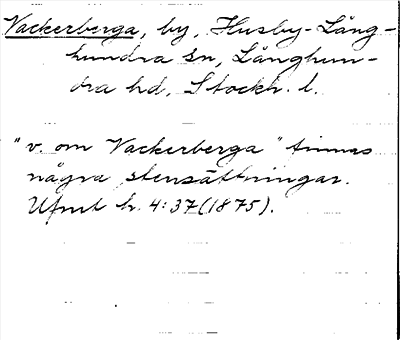 Vackerberga, by, Husby-Lång-
hundra sn, Långhun-
dra hd, Stockh. l.
"v. om Vackerberga" finnas
några stensättningar.
Ufmt h. 4:37 (1875).